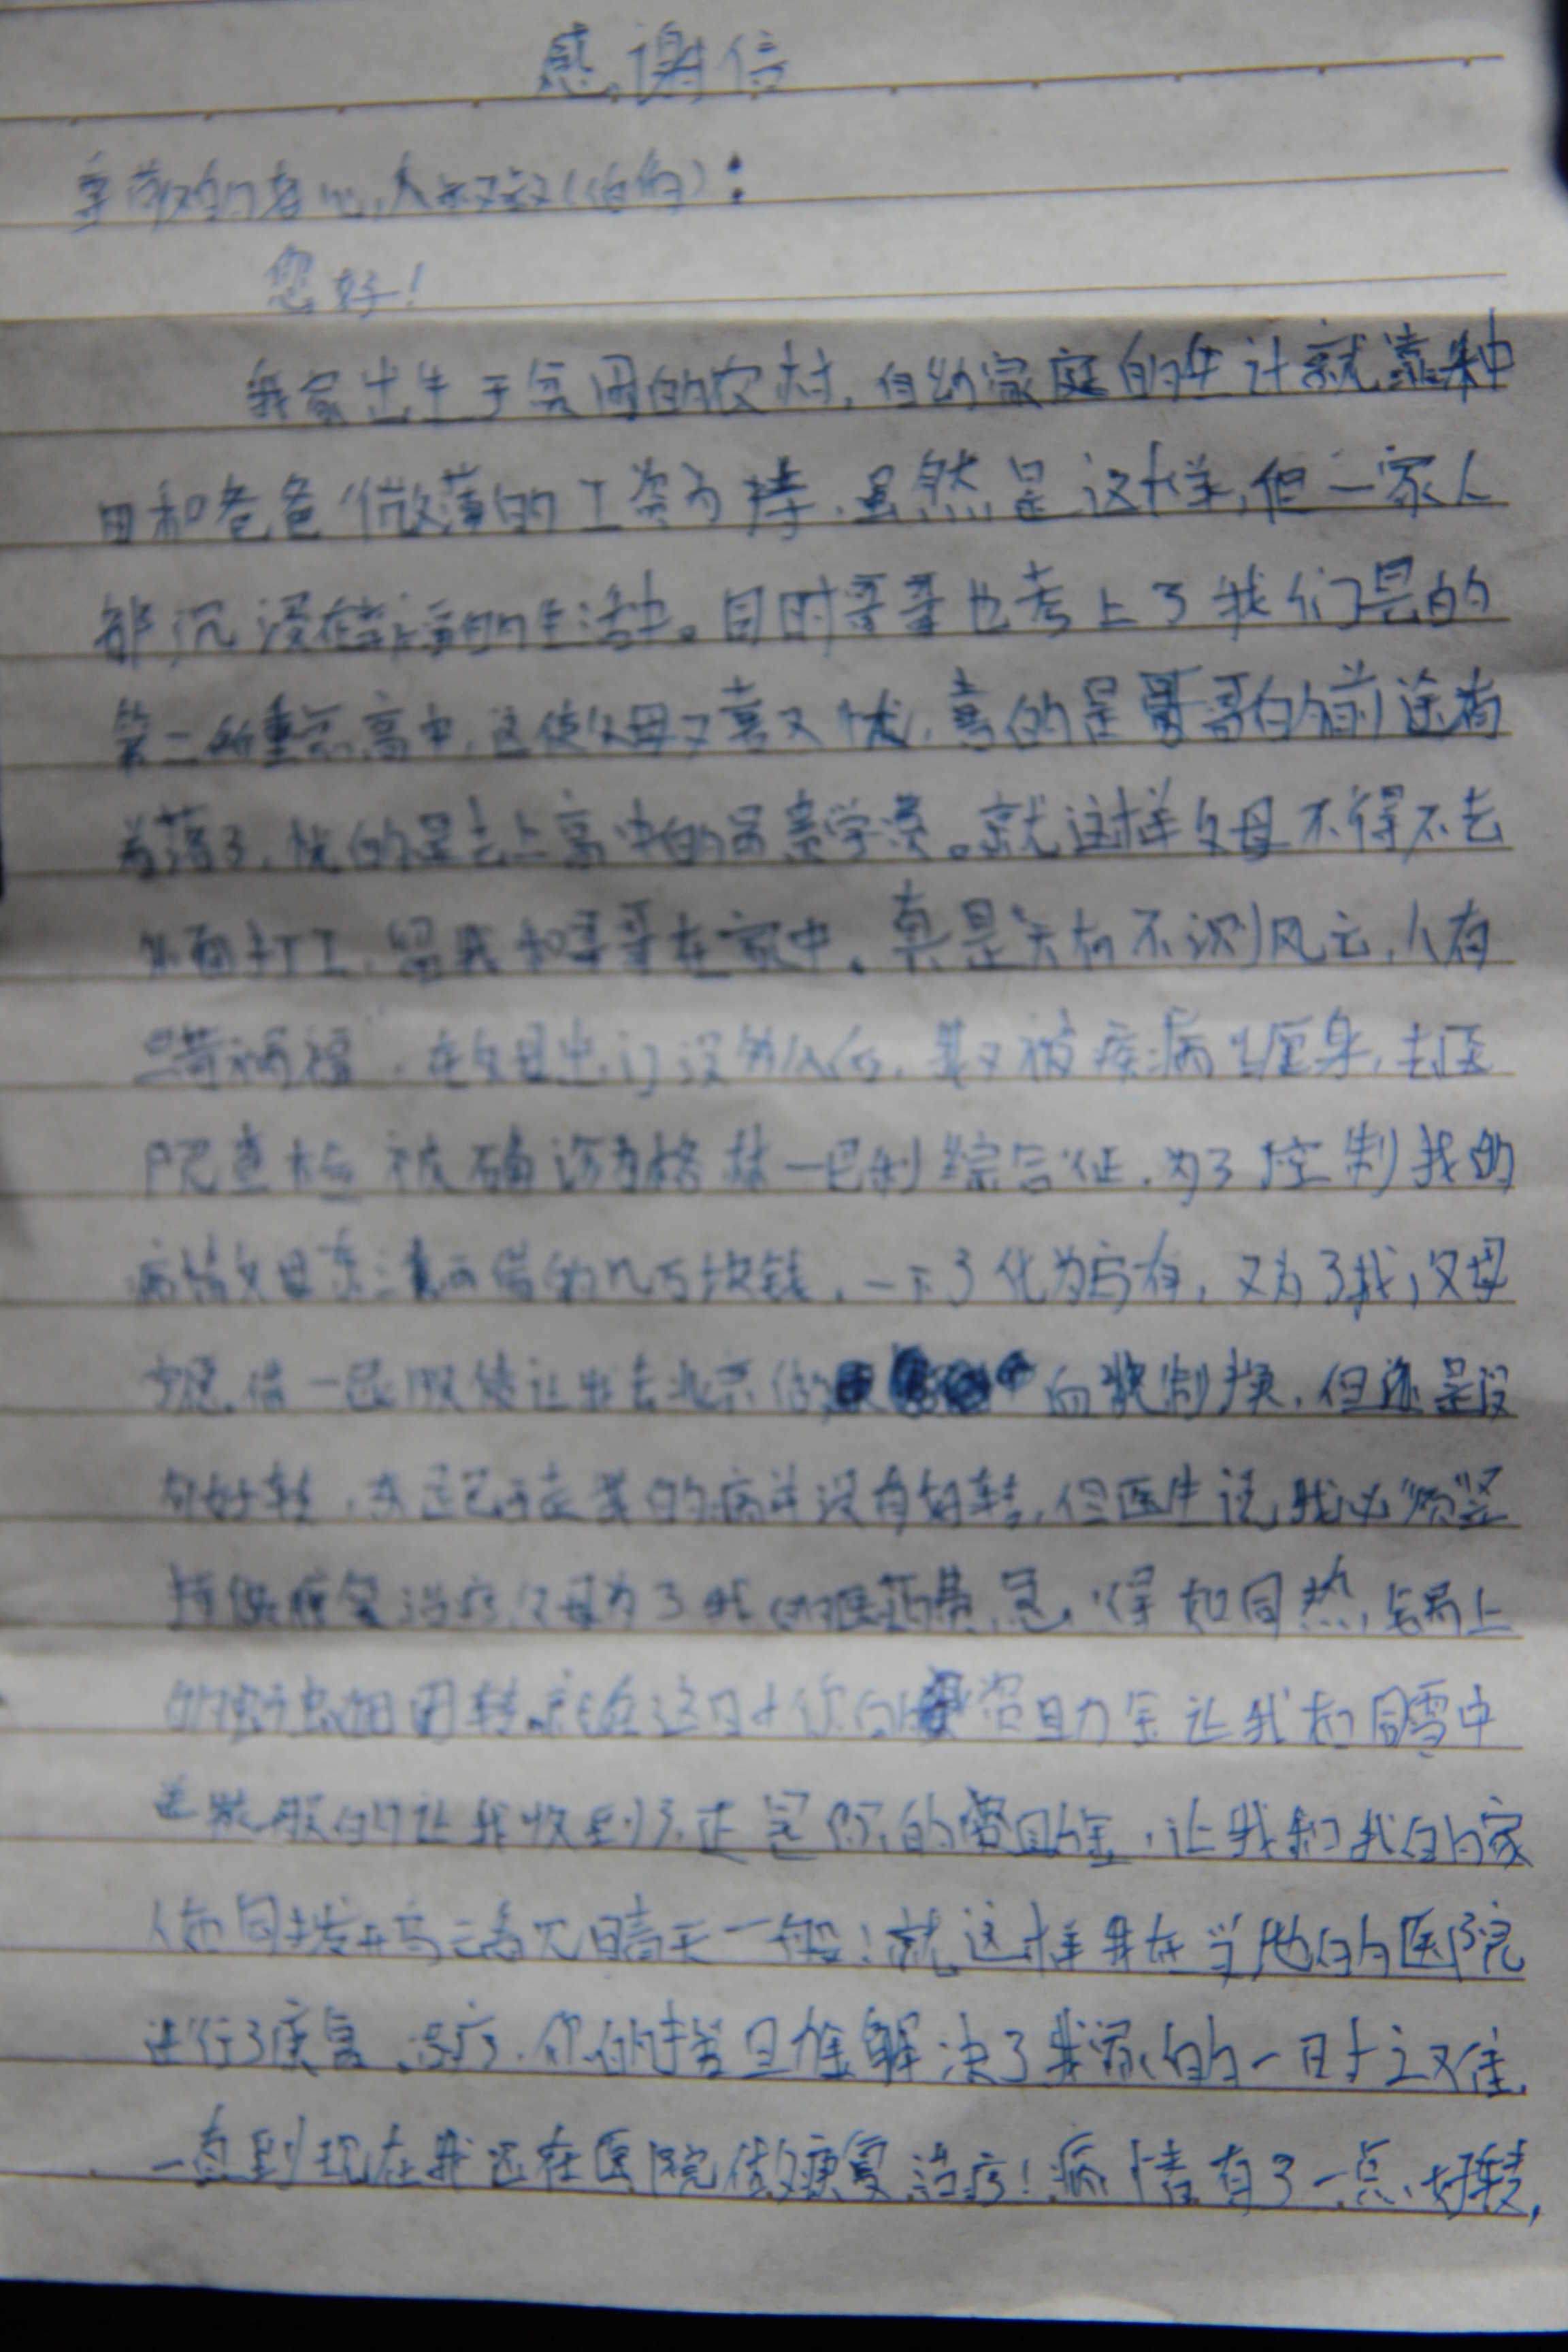 感谢信
尊敬的好心人叔叔(伯伯):
您好!
我家出生于贫困的农村,自幼家庭的生计就靠种
田和爸爸微薄的工资支撑,虽然是这样,但一家人
都沉浸在幸福的生活中。同时哥哥也考上了我们县的
第二所重点高中,这使父母又喜又忧,喜的是哥哥的前途有
着落了,忧的是去上高中的昂贵学费。就这样父母不得不去
外面打工,留我和哥哥在家中。真是天有不测风云,人有
旦夕祸福,在父母出门没多久后,我又被疾病缠身,去医
院查检被确诊为格林一巴利综合征,为了控制我的
病情父母东凑西借的几万块钱,一下子化为乌有,又为了我,父母
又借一笔钱让我去北京做血浆制换,但还是没
有好转,我的病并没有好转,但医生说我必须坚
持做康复治疗,父母为了我的医药费急得如同热锅上
的蚂蚁团团转,就在这时你的资助金让我如同雪中
送炭般的让我收到了,正是你的捐助金,让我和我的家
人如同拨开乌云看见晴天一般!就这样我在当地的医院
进行了康复治疗,你的捐助金解决了我家的一时之难,
一直到现在我还在医院做康复治疗!病情有了一点好转,